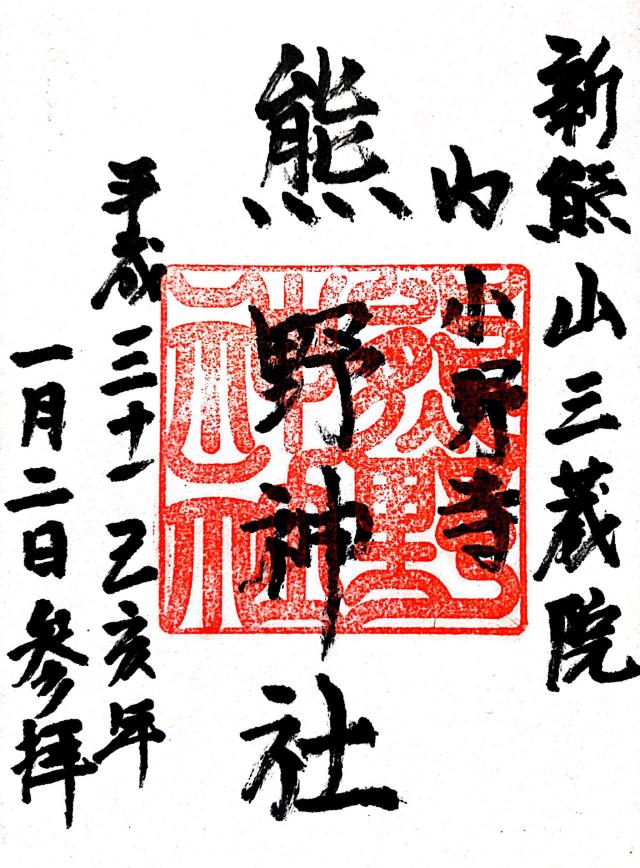 新熊山三蔵院
内
小野寺
熊野神社
平成三十一己亥年
一月二日参拝
熊野神社